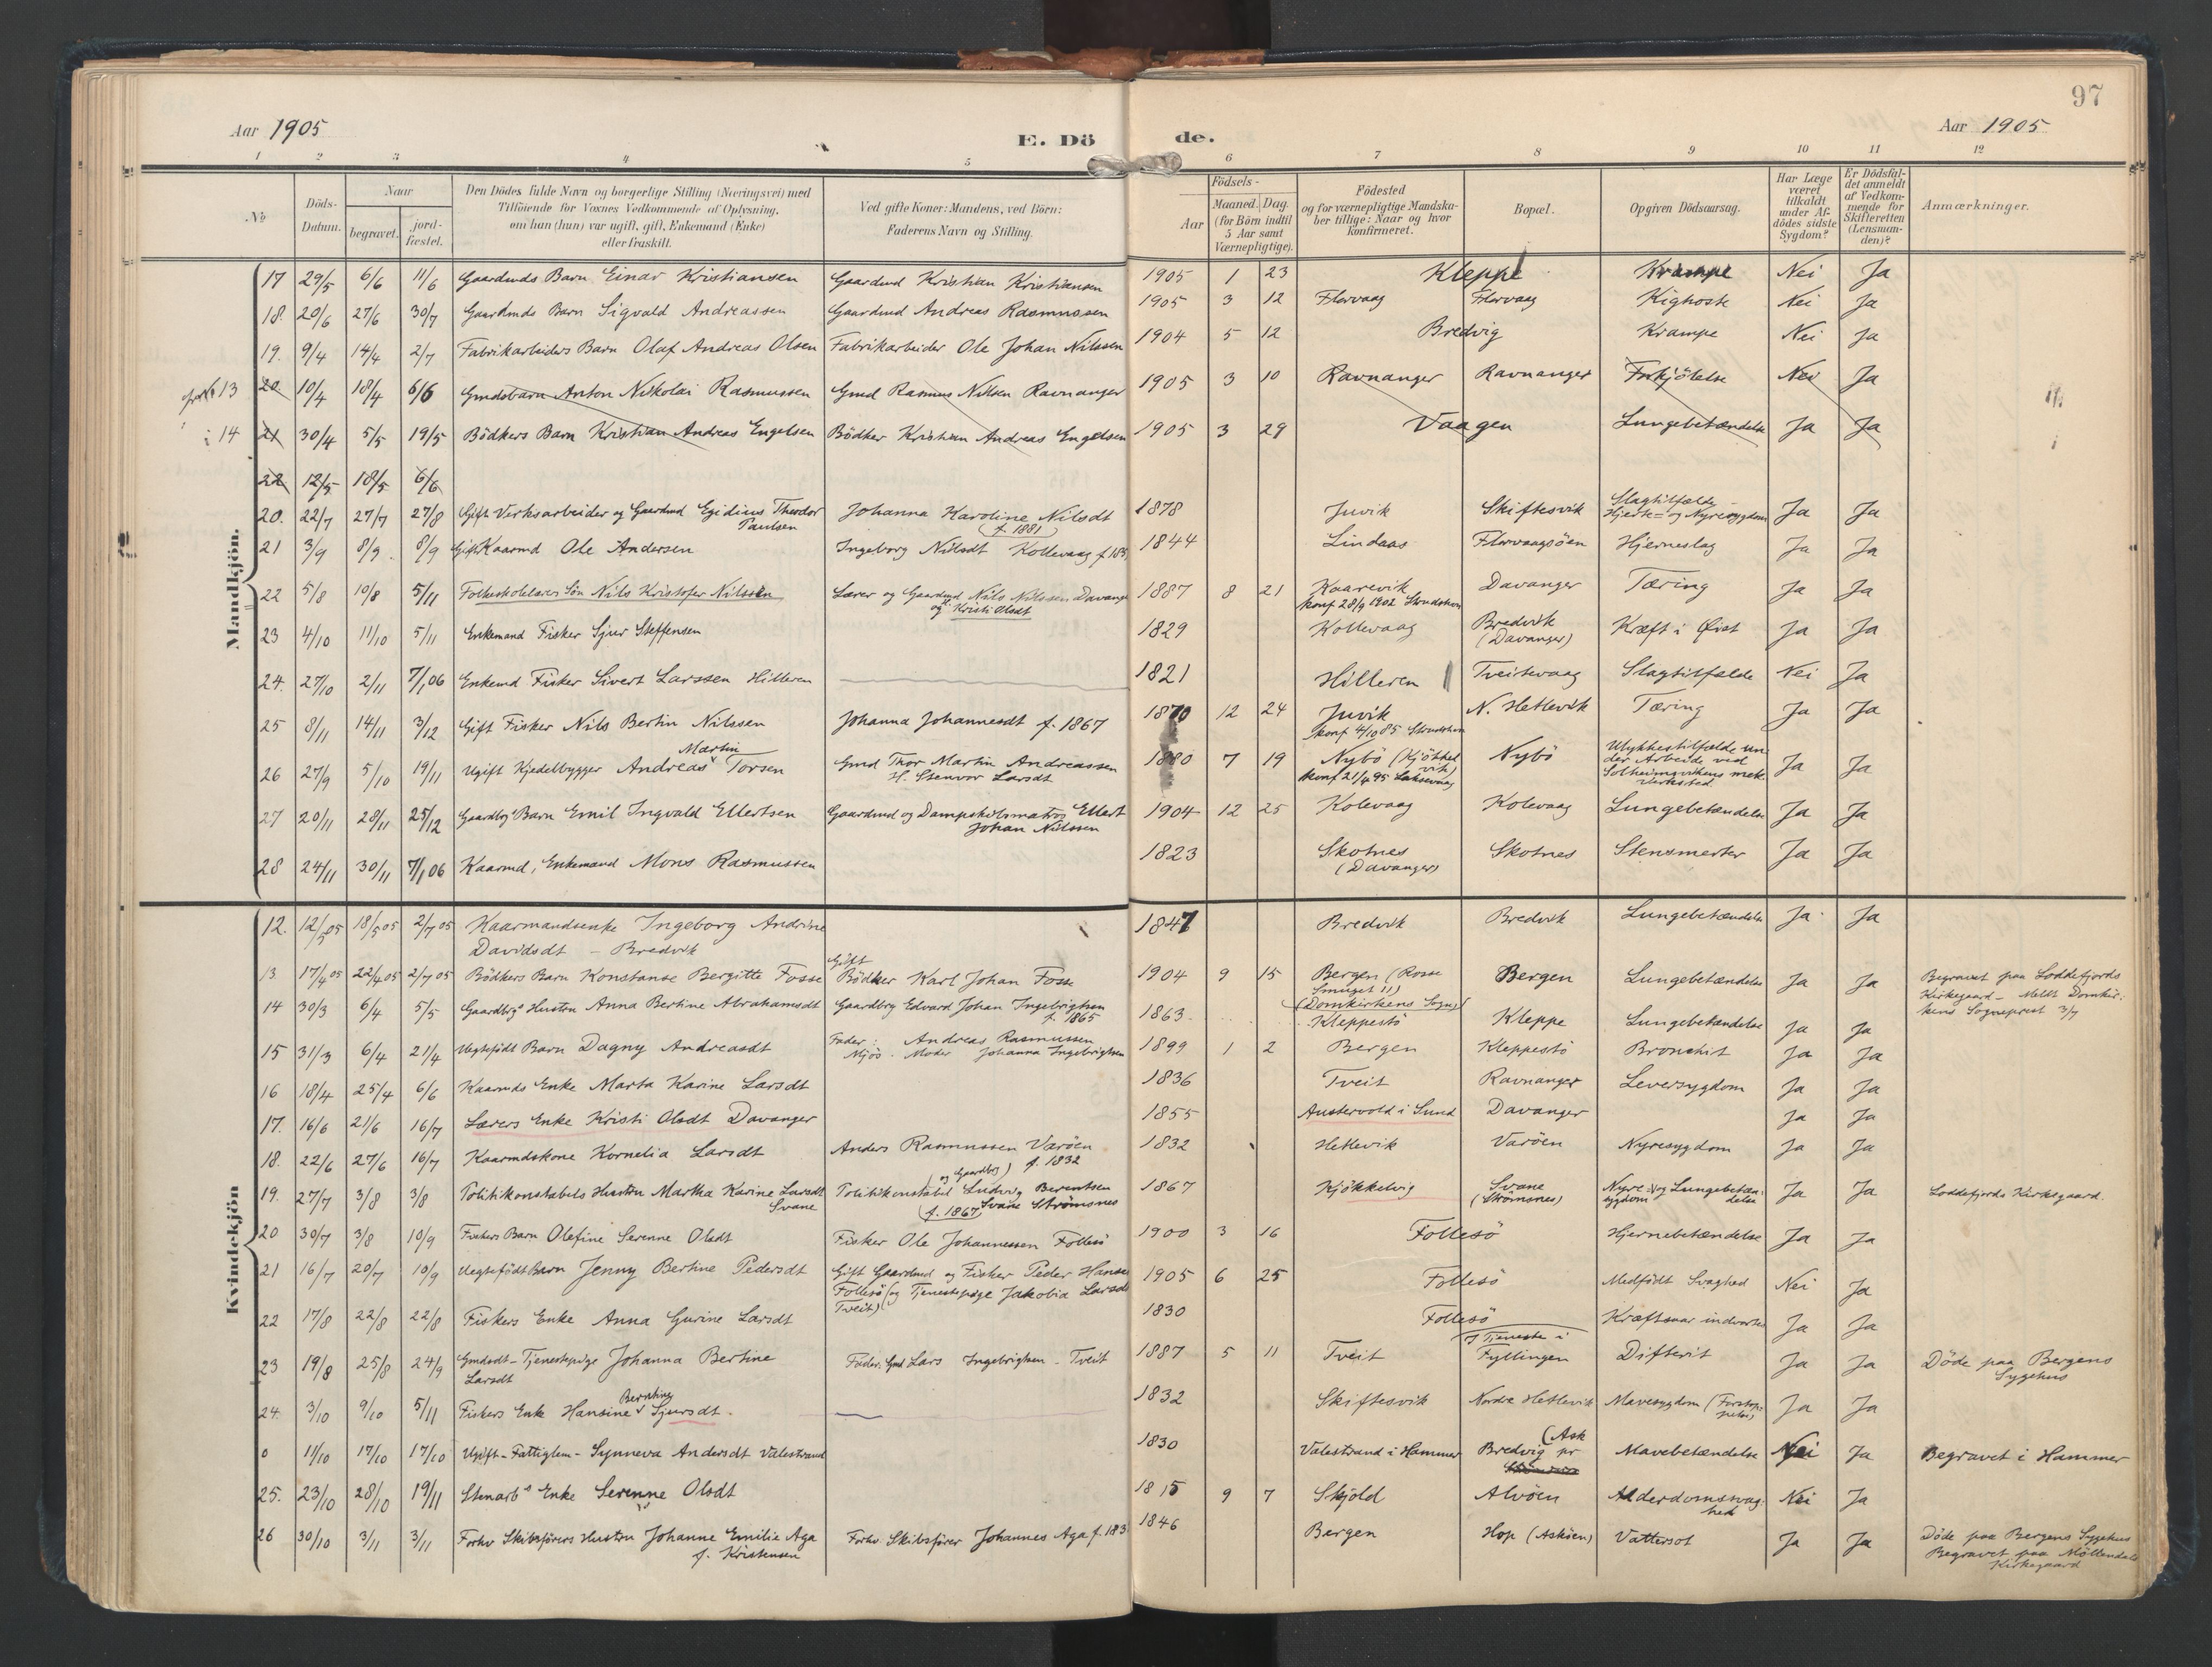 97
Aar 1905 E. Dö de. Aar 1905
1 2 3 4 5 6 7 8 9 10 11 12
No
Döds-Datum.
Naar
begravet.
jord-fæstet.
Den Dödes fulde Navn og borgerlige Stilling (Næringsvei) med
Tilföiende for Voxnes Vedkommende af Oplysning,
om han (hun) var ugift, gift, Enkemand (Enke)
eller fraskilt.
Ved gifte Koner: Mandens, ved Börn:
Faderens Navn og Stilling.
Födsels-
Aar
Maaned. Dag.
(for Börn indtil
5 Aar samt
Værnepligtige).
Födested
og for værnepligtige Mandska-
ber tillige: Naar og hvor
konfirmeret.
Bopæl.
Opgiven Dödsaarsag.
Har Læge
været
tilkaldt
under Af-
dödes sidste
Sygdom?
Er Dödsfal-
det anmeldt
af Vedkom-
mende for
Skifteretten
(Lensman-
den)?
Anmærkninger.
Mandkjön.
17 29/5 6/6 11/6 Gaardmds Barn Einar Kristiansen Gaardmd Kristian Kristiansen 1905 1 23 Kleppe Krampe Nei Ja
18. 20/6 27/6 30/7 Gaardmds Barn Sigvald Andreassen Gaardmd Andreas Rasmussen 1905 3 12 Florvaag Florvaag Kighoste Nei Ja
19. 9/4 14/4 2/7 Fabrikarbeiders Barn Olaf Andreas Olsen Fabrikarbeider Ole Johan Nilssen 1904 5 12 Bredvig Krampe Nei Ja
13 20 10/4 18/4 6/6 Gmdsbarn Anton Nikolai Rasmussen Gmd Rasmus Nilsen Ravnanger 1905 3 10 Ravnanger Ravnanger Forkjölelse Nei Ja
i 14 21 30/4 5/5 19/5 Bödkers Barn Kristian Andreas Engelsen Bödker Kristian Andreas Engelsen 1905 3 29 Vaagen Lungebetændelse Ja Ja
22 12/5 18/5 6/6
20. 22/7 27/7 27/8 Gift Verksarbeider og Gaardmd Egidius Theodor Paulsen Johanna Karoline Nilsdt (f. 1881) 1878 Juvik Skiftesvik Slagtilfælde Hjerte= og Nyresygdom Ja Ja
21 3/9 8/9. 8/9 Gift Kaarmd Ole Andersen Ingeborg Nilsdt Kollevaag 1844 Lindaas Florvaagöen Hjerneslag Ja Ja
22 5/8 10/8 5/11 Folkeskolelærer Sön Nils Kristofer Nilssen Lærer og Gaardmd Nils Nilssen Davanger og Kristi Olsdt 1887 8 21 Kaarevik konf 28/9 1902 Davanger Tæring Ja Ja
23 4/10 11/10 5/11 Enkemand Fisker Sjur Steffensen 1829 Kollevaag Bredvik (Davanger) Kræft i Øiet Ja Ja
24. 27/10 2/11 7/1 06 Enkemd Fisker Sivert Larssen Hilleren 1821 Hilleren Tveitevaag Slagtilfælde Nei Ja
25 8/11 14/11 3/12 Gift Fisker Nils Bertin Nilssen Johanna Johannesdt f. 1867 1870 12 24 Juvik konf 4/10 85 N. Hetlevik Tæring Ja Ja
26 27/9 5/10 19/11 Ugift Kjedelbygger Andreas Martin Torsen Gmd Thor Martin Andreassen H. Stenvor Larsdt 1880 7 19 Nybö (Kjökkelvik) konf 21/4 95 Laksevaag Nybö Ulykkestilfælde under Arbeide ved Solheimsvikens mek Verksted Ja Ja
27 20/11 28/11 25/12 Gaardbrs Barn Emil Ingvald Ellertsen Gaardmd og Dampskibsmatros Ellert Johan Nilssen 1904 12 25 Kolevaag Kolevaag Lungebetændelse Ja Ja
28 24/11 30/11 7/1 06 Kaarmd, Enkemand Mons Rasmussen 1823 Skotnes (Davanger) Skotnes Stensmerter Ja Ja
Kvindekjön
12. 12/5 05 18/5 05 2/7 05 Kaarmandsenke Ingeborg Andrine Davidsdt - Bredvik 1847 Bredvik Bredvik Lungebetændelse Ja Ja
13 17/4 05 22/4 05 2/7 05 Bödkers Barn Konstanse Bergitte Fosse Gift Bödker Karl Johan Fosse 1904 9 15 Bergen (Rosesmuget 11) (Domkirkens Sogn) Bergen Lungebetændelse Ja Ja Begravet paa Loddefjords Kirkegaard - Meldt Domkirkens Sogneprest 3/7
14 30/3 6/4 5/5 Gaardbrs Hustru Anna Bertine Abrahamsdt Gaardbrg Edvard Johan Ingebrigtsen f. 1865 1863 Kleppestö Kleppe Lungebetændelse Ja Ja
15 31/3 6/4 21/4 Uegtefödt Barn Dagny Andreasdt Fader: Andreas Rasmussen Mjös. Moder Johanna Ingebrigtsen 1899 1 2 Bergen Kleppestö Bronchit Ja Ja
16 18/4 25/4 6/6 Kaarmds Enke Marta Karine Larsdt 1836 Tveit Ravnanger Leversygdom Ja Ja
17. 16/6 21/6 16/7 Lærers Enke Kristi Olsdt Davanger 1855 Austervold i Sund Davanger Ja Ja
18. 22/6 27/6 16/7 Kaarmdskone Kornelia Larsdt Anders Rasmussen Varöen f. 1832 1832 Hetlevik Varöen Nyresygdom Ja Ja
19. 27/7 3/8 3/8 Politikonstabels Hustru Martha Karine Larsdt Svane Politikonstabel (og Gaardbrg) Ludvig Berentsen Svane Strömsnes (f. 1867) 1867 Kjökkelvig Svane (Strömsnes) Nyresygdom og Lungebetændelse Ja Ja Loddefjords Kirkegaard.
20 30/7 3/8 10/9 Fiskers Barn Olefine Serenne Olsdt Fisker Ole Johannessen Follesö 1900 3 16 Follesö Hjernebetændelse Ja Ja
21 16/7 20/7 10/9 Uegtefödt Barn Jenny Bertine Pedersdt Gift Gaardmd og Fisker Peder Hansen Follesö (og Tjenestepige Jakobia Larsdt Tveit) 1905 6 25 Follesö Medfödt Svaghed Nei Ja
22 17/8 22/8 22/8 Fiskers Enke Anna Gurine Larsdt 1830 Follesö Kræftsaar indvortes Ja Ja
23 19/8 25/8 24/9 Gmdsdt - Tjenestepige Johanna Bertine Larsdt Fader: Gmd Lars Ingebrigtsen - Tveit 1887 5 11 Tveit I Tjeneste i Fyllingen Difterit Ja Ja Döde paa Bergens Sygehus
24. 3/10 9/10 5/11 Fiskers Enke Hansine Berntine Sjursdt. 1832 Skiftesvik Nordre Hetlevik Mavesygdom Ja Ja
0 11/10 17/10 17/10 Ugift - Fattiglem - Synneva Andersdt Valestrand 1830 Valestrand i Hammer Bredvig pr (Ask Mavebetændelse Nei Ja Begravet i Hammer
25. 23/10 28/10 19/11 Stenarbs Enke Serenne Olsdt 1815 9 7 Skjold Alvöen Alderdomssvaghed Nei Ja
26 30/10 3/11 3/11 Forhv Skibsförers Hustru Johanne Emilie Aga f. Kristensen Forhv. Skibsförer Johannes Aga 1846 Bergen Hop (Asköen) Vattersot Ja Ja Döde paa Bergens Sygehus Begravet paa Möllendals Kirkegaard